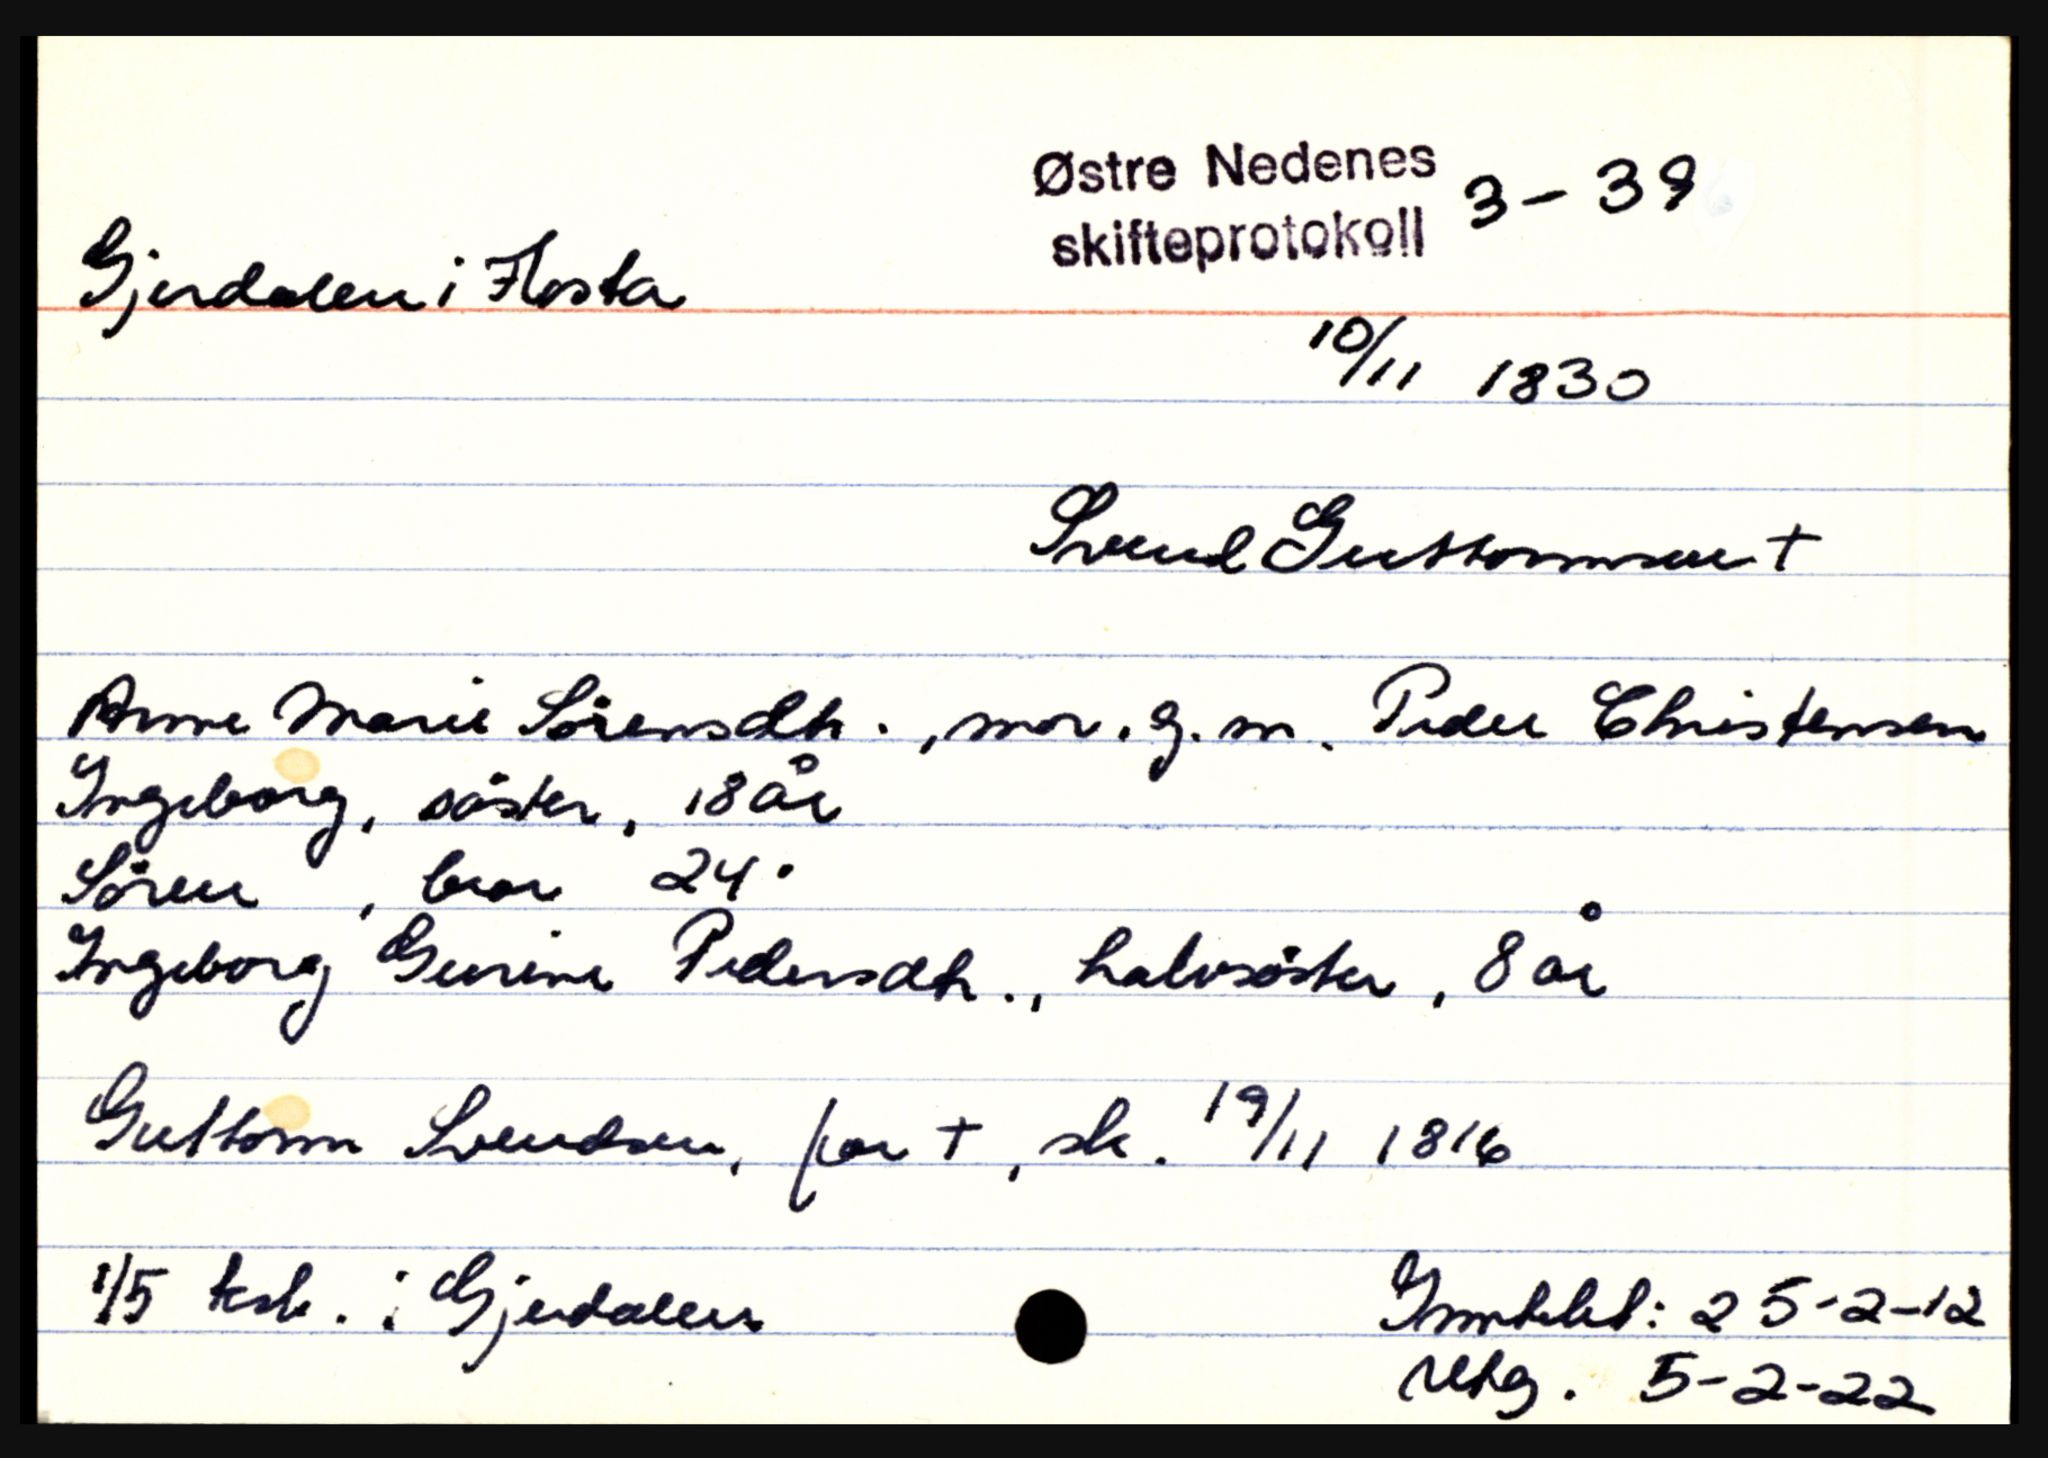 Østre Nedenes 3 - 39
skifteprotokoll
Gjerdalen i Flosta
10/11 1830
Svend Guttormsen +
Anne Marie Sörensdtr., mor. g. m. Peder Christensen
Ingeborg, söster, 18 år
Sören , bror 24 "
Ingeborg Gurine Pedersdtr., halvsöster, 8 år
Guttorm Svendsen, far +, sk. 19/11 1816
1/5 hsk. i Gjerdalen
Inntekt: 25-2-12
Utg. 5-2-22